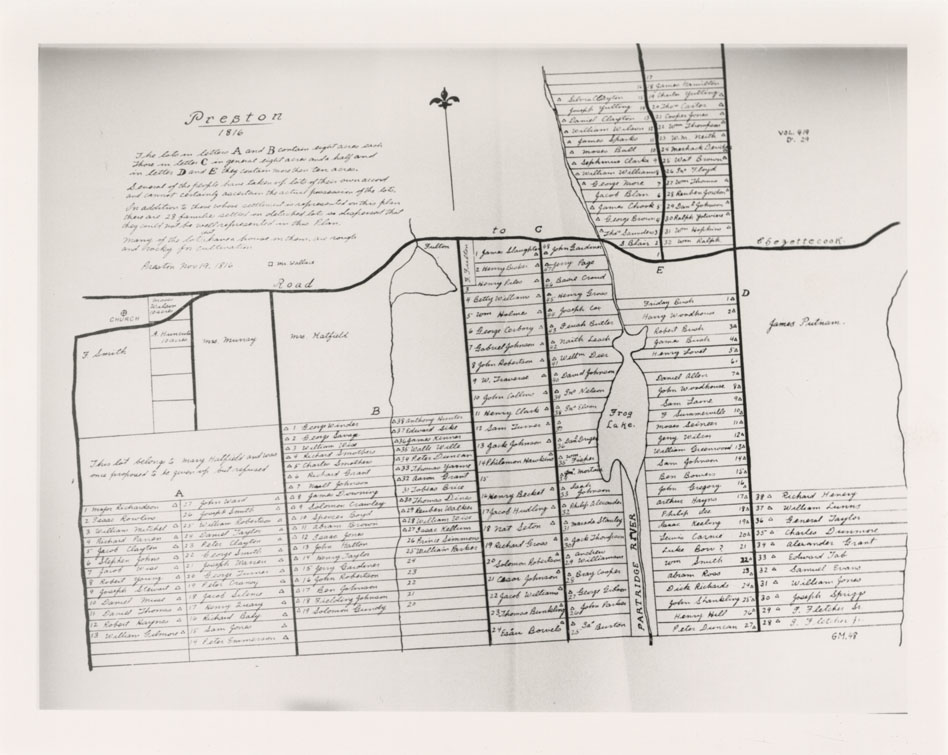 Preston
1816
The lots in letters A and B contain eight acres each
Those in letter C in general eight acres and a half and
in letter D and E they contain more than ten acres.
Several of the people have taken of lots of their own accord
and cannot certainly ascertain the actual possession of the lots.
In addition to those whose settlement is represented in this plan
there are 28 families settled on detached lots so dispersed that
they could not be well represented in this Plan.
Many of the lots have houses on them, are rough
and rocky for cultivation
Preston Nov 19, 1816
Mr. Wallace
VOL. 419
D. 29
Road
to
C
Chezzetcook.
Fullon
CHURCH
F Smith
Mrs. Murray
Mrs. Hatfield
James Putnam.
This lot belongs to Mary Hatfield and was
once proposed to be given up but refused
A
1 Major Richardson
2 Isaac Rowlins
3 William Mitchel
4 Richard Parson
5 Jacob Clayton
6 Stephen Johns
7 Jacob West
8 Robert Young
9 Joseph Stewart
10 Daniel Mins
11 Daniel Thomas
12 Robert Haynes
13 William Gilmore
27 John Ward
26 Joseph Smith
25 William Robertson
24 Daniel Taylor
23 Peter Clayton
22 George Smith
21 Joseph Warren
20 George Turner
19 Peter
18 Jacob Silens
17 Henry
16 Richard Baly
15 Sam Jones
14 Peter
B
1 George Winder
2 George Savage
3 William Wise
4 Richard Smothers
5 Charles Smothers
6 Richard Grant
7 Noell Johnson
8 James Downing
9 Solomon Crawley
10 Spencer Boyd
11 Abram Brown
12 Isaac Jones
13 John Hatton
14 Henry Taylor
15 Jerry Gardiner
16 John Robertson
17 Ben Johnson
18 Johnson
19 Solomon Gundy
38 Anthony Hunter
37 Edward Sikes
36 James Kenner
35 Watts Wills
34 Peter Duncan
33 Thomas
32 Aaron Grant
31 Tobias Brice
30 Thomas Dine
29 Reuben Walker
28 William Wise
27 Isaac Kellum
26 Prince Simmons
25 William Barker
24
23
22
21
20
1 James Slaughter
2 Henry Cocker
3 Henry Piles
4 Betty Williams
5 Wm Holme
6 George Carbory
7 Gabriel Johnson
8 John Robertson
9 W. Traverse
10 John Collins
11 Henry Clark
12 Sam Turner
13 Jack Johnson
14 Philemon Hawkins
15
16 Henry Becket
17 Jacob Hudling
18 Nat Seton
19 Richard Gross
20 Solomon Robertson
21 Cesar Johnson
22 Jacob Williams
23 Thomas Bunkling
24 Esau Bowels
John Gardiner
Jerry Page
Basil Crowd
Henry Gross
Joseph Cox
Isaiah Butler
Naith Leach
Willm Dier
David Johnson
Jno Nelson
Leah Johnson
Philip Alexander
Nanela Stanley
Jack Thompson
Andrew Williamson
Bray Cooper
George
John Parker
Jas Burton
Frog
Lake.
PARTRIDGE RIVER
Silvia Clayton
Joseph Gulling
Daniel Clayton
William Wilson 12
James Sparks
Moses Bull 10
Sophinus Clarke 9
William Williams
George More 7
Jacob Blan 6
James Chook 5
George Brown 4
Thos Saunders 3
S. Blair 2
1
17
18 James Hamilton
19 Charles Gulling
20 Thos Carter
22 Cooper Jones
23 Wm Thompson
23 W.M. Keith
25 Wat Brown
26 Jno Floyd
27 Wm Thomas
28 Reuben Gordon
29 Danl Johnson
30 Ralph
31 Wm Hopkins
32 Wm Ralph
E
D
Friday Bush 1
Harry Woodhouse 2
Robert Bush 3
James Bush 4
Henry Lovet 5
6
Daniel Allen 7
John Woodhouse 8
Sam Lame 9
F Summerville 10
Moses Seiners 11
Jerry Wilson 12
William Greenwood 13
Sam Johnson 14
Ben Bowers 15
John Gregory 16
Arthur Hayns 17
Philip Lee 18
Isaac Keeling 19
Lewis Carnie 20
Luke Bow? 21
Wm Smith 22
Abram Ross 23
Dick Richards 24
John Shankling 25
Henry Hill 26
Peter Duncan 27
38 Richard Henery
37 William Linns
36 General Taylor
35 Charles Dunmore
34 Alexander Grant
33 Edward Tab
32 Samuel Evans
31 William Jones
30 Joseph Spriggs
29 J. Fletcher Sr
28 J. Fletcher Jr.
G.M. 48